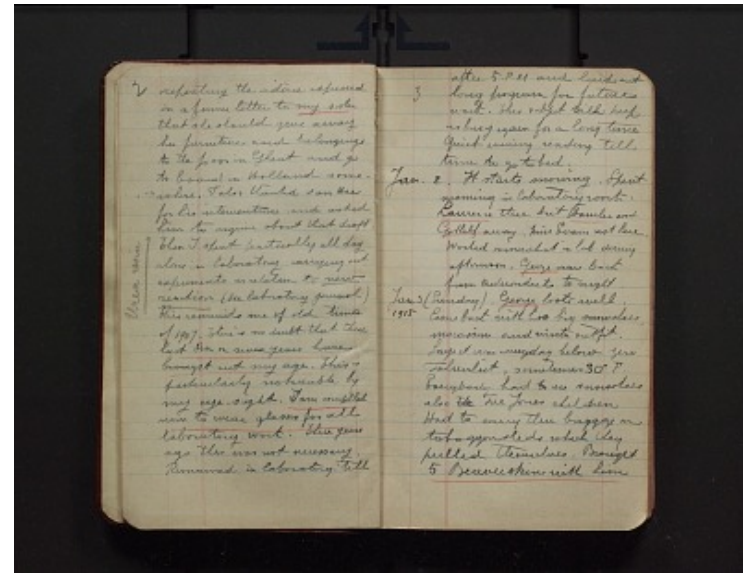 2 repeating the ideas expressed
in a former letter to my sister
that she should give away
her furniture and belongings
to the poor in Ghent and go
to board in Holland some-
where. I also thanked
for his intervention and asked
him to inquire about that draft
Then I spent practically all day
alone in laboratory carrying out
experiments in relation to new
reaction (see laboratory journal)
This reminds me of old times
of 1907. There is no doubt that these
last six or seven years have
brought out my age. This is
particularly noticeable by
my eye sight. I am compelled
now to wear glasses for all
laboratory work. Three years
ago this was not necessary.
Remained in laboratory till
3 after 5 P.M and laid out
long program for future
work. This will keep
us busy again for a long time
Quiet evening reading till
time to go to bed.
Jan. 2. It starts snowing. Spent
morning in laboratory work.
there but and
Gottlieb away. not here
Worked somewhat in lab during
afternoon. George came back
from to night
Jan 3 (Sunday). George looks well.
1915 Came back with big snowshoes
moccasins and outfit.
every day below zero
Fahrenheit, sometimes 30° F.
Everybody had to use snowshoes
also the children
Had to carry their baggage on
toboggan sleds which they
pulled themselves. Brought
5 Beaver skins with him